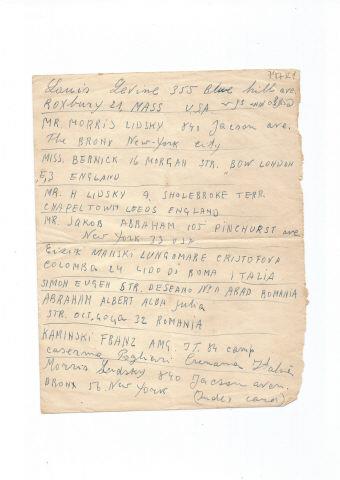 Louis Levine 355 Blue hills ave.
ROXBURY 21 MASS USA
MR. MORRIS LIDSKY 840 Jacson ave.
The BRONX New-York city
MISS. BERNICK 16 MORGAN STR. BOW LONDON
E,3 ENGLAND
MR. H LIDSKY 9, SHOLEBROKE TERR.
CHAPELTOWN LEEDS ENGLAND
MR. JAKOB ABRAHAM 105 PINEHURST ave
New York 33 USA
MANSKI LUNGOMARE CRISTOFOVA
COLOMBA 24 LIDO DI ROMA ITALIA
SIMON EUGEN STR. DESEANO No 11 ARAD ROMANIA
ABRAHAM ALBERT ALBA Julia
STR. OCT. GOGA 32 ROMANIA
KAMINSKI FRANZ AMG. IT. 84 camp
caserma Pagliari Cremona Italia
Morris Lidsky 840 Jacson aven.
BRONX 56. New York